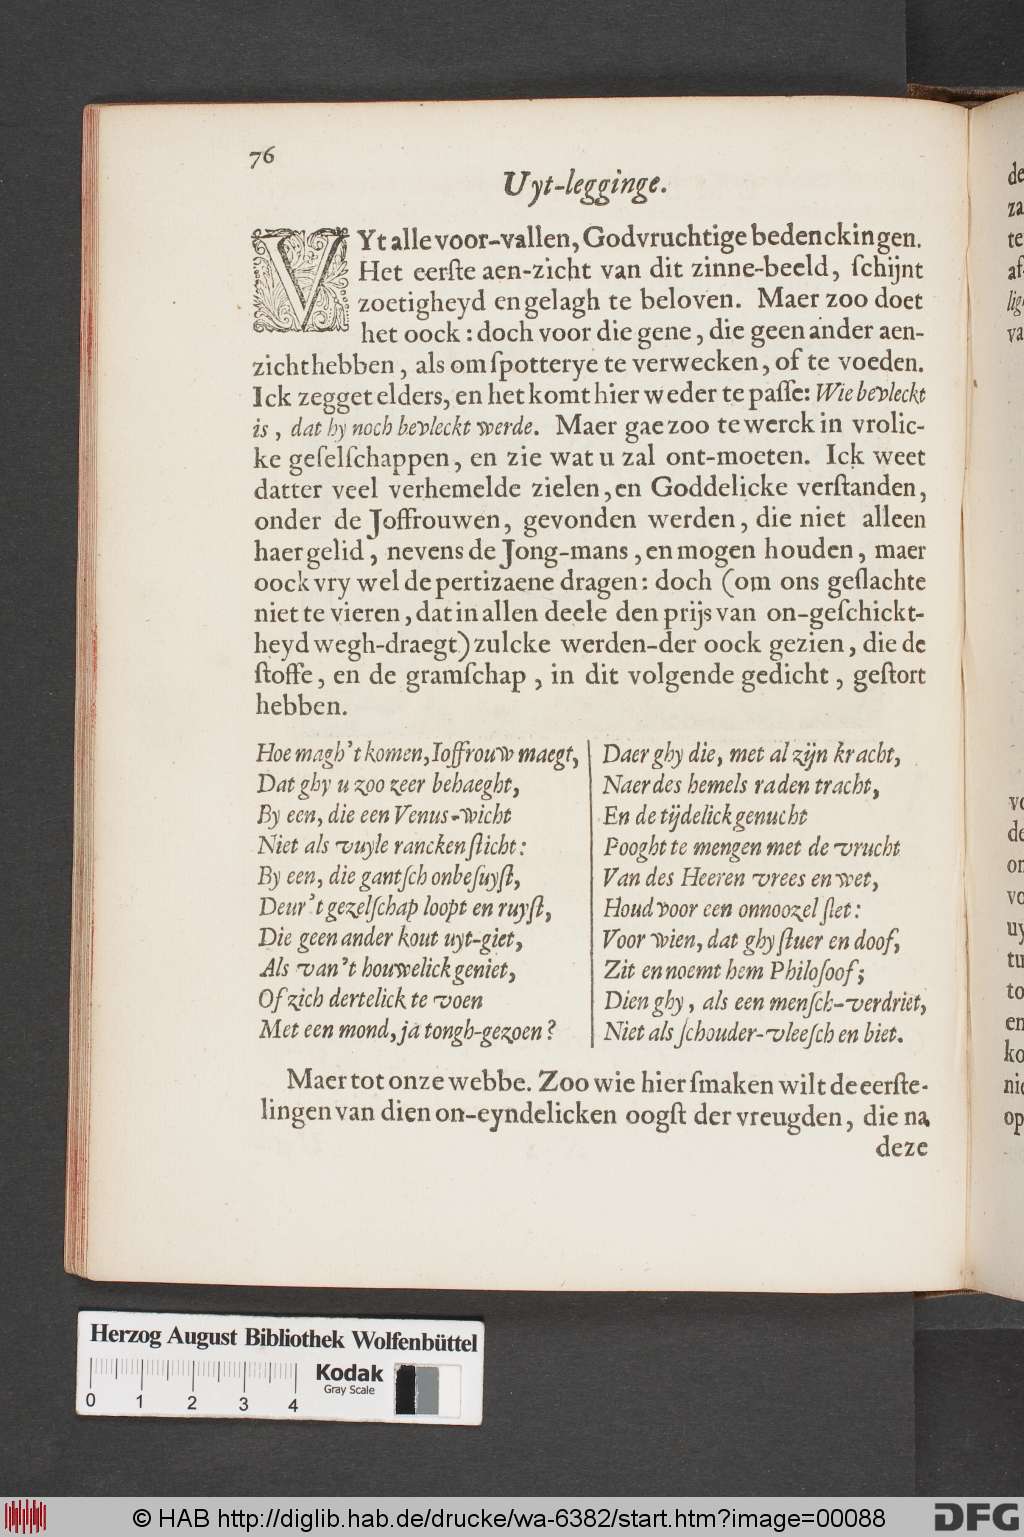 76
Uyt-legginge.
VYt alle voor-vallen, Godvruchtige bedenckingen.
Het eerſte aen-zicht van dit zinne-beeld, ſchijnt
zoetigheyd en gelagh te beloven. Maer zoo doet
het oock : doch voor die gene, die geen ander aen-
zicht hebben, als om ſpotterye te verwecken, of te voeden.
Ick zegget elders, en het komt hier weder te paſſe: Wie bevleckt
is, dat hy noch bevleckt werde. Maer gae zoo te werck in vrolic-
ke geſelſchappen, en zie wat u zal ont-moeten. Ick weet
datter veel verhemelde zielen, en Goddelicke verſtanden,
onder de Joffrouwen, gevonden werden, die niet alleen
haer gelid, nevens de Jong-mans, en mogen houden, maer
oock vry wel de pertizaene dragen: doch (om ons geſlachte
niet te vieren, dat in allen deele den prijs van on-geſchickt-
heyd wegh-draegt) zulcke werden-der oock gezien, die de
ſtoffe, en de gramſchap, in dit volgende gedicht, geſtort
hebben.
Hoe magh't komen, Ioffrouw maegt,
Dat ghy u zoo zeer behaeght,
By een, die een Venus-wicht
Niet als vuyle rancken ſticht:
By een, die gantſch onbeſuyſt,
Deur't gezelſchap loopt en ruyſt,
Die geen ander kout uyt-giet,
Als van't houwelick geniet,
Of zich dertelick te voen
Met een mond, ja tongh-gezoen?
Daer ghy die, met al zijn kracht,
Naer des hemels raden tracht,
En de tijdelick genucht
Pooght te mengen met de vrucht
Van des Heeren vrees en wet,
Houd voor een onnoozel ſlet:
Voor wien, dat ghy ſtuer en doof,
Zit en noemt hem Philoſoof;
Dien ghy, als een menſch-verdriet,
Niet als ſchouder-vleeſch en biet.
Maer tot onze webbe. Zoo wie hier ſmaken wilt de eerſte-
lingen van dien on-eyndelicken oogſt der vreugden, die na
deze
Herzog August Bibliothek Wolfenbüttel
Kodak
Gray Scale
0 1 2 3 4
© HAB http://diglib.hab.de/drucke/wa-6382/start.htm?image=00088
DFG